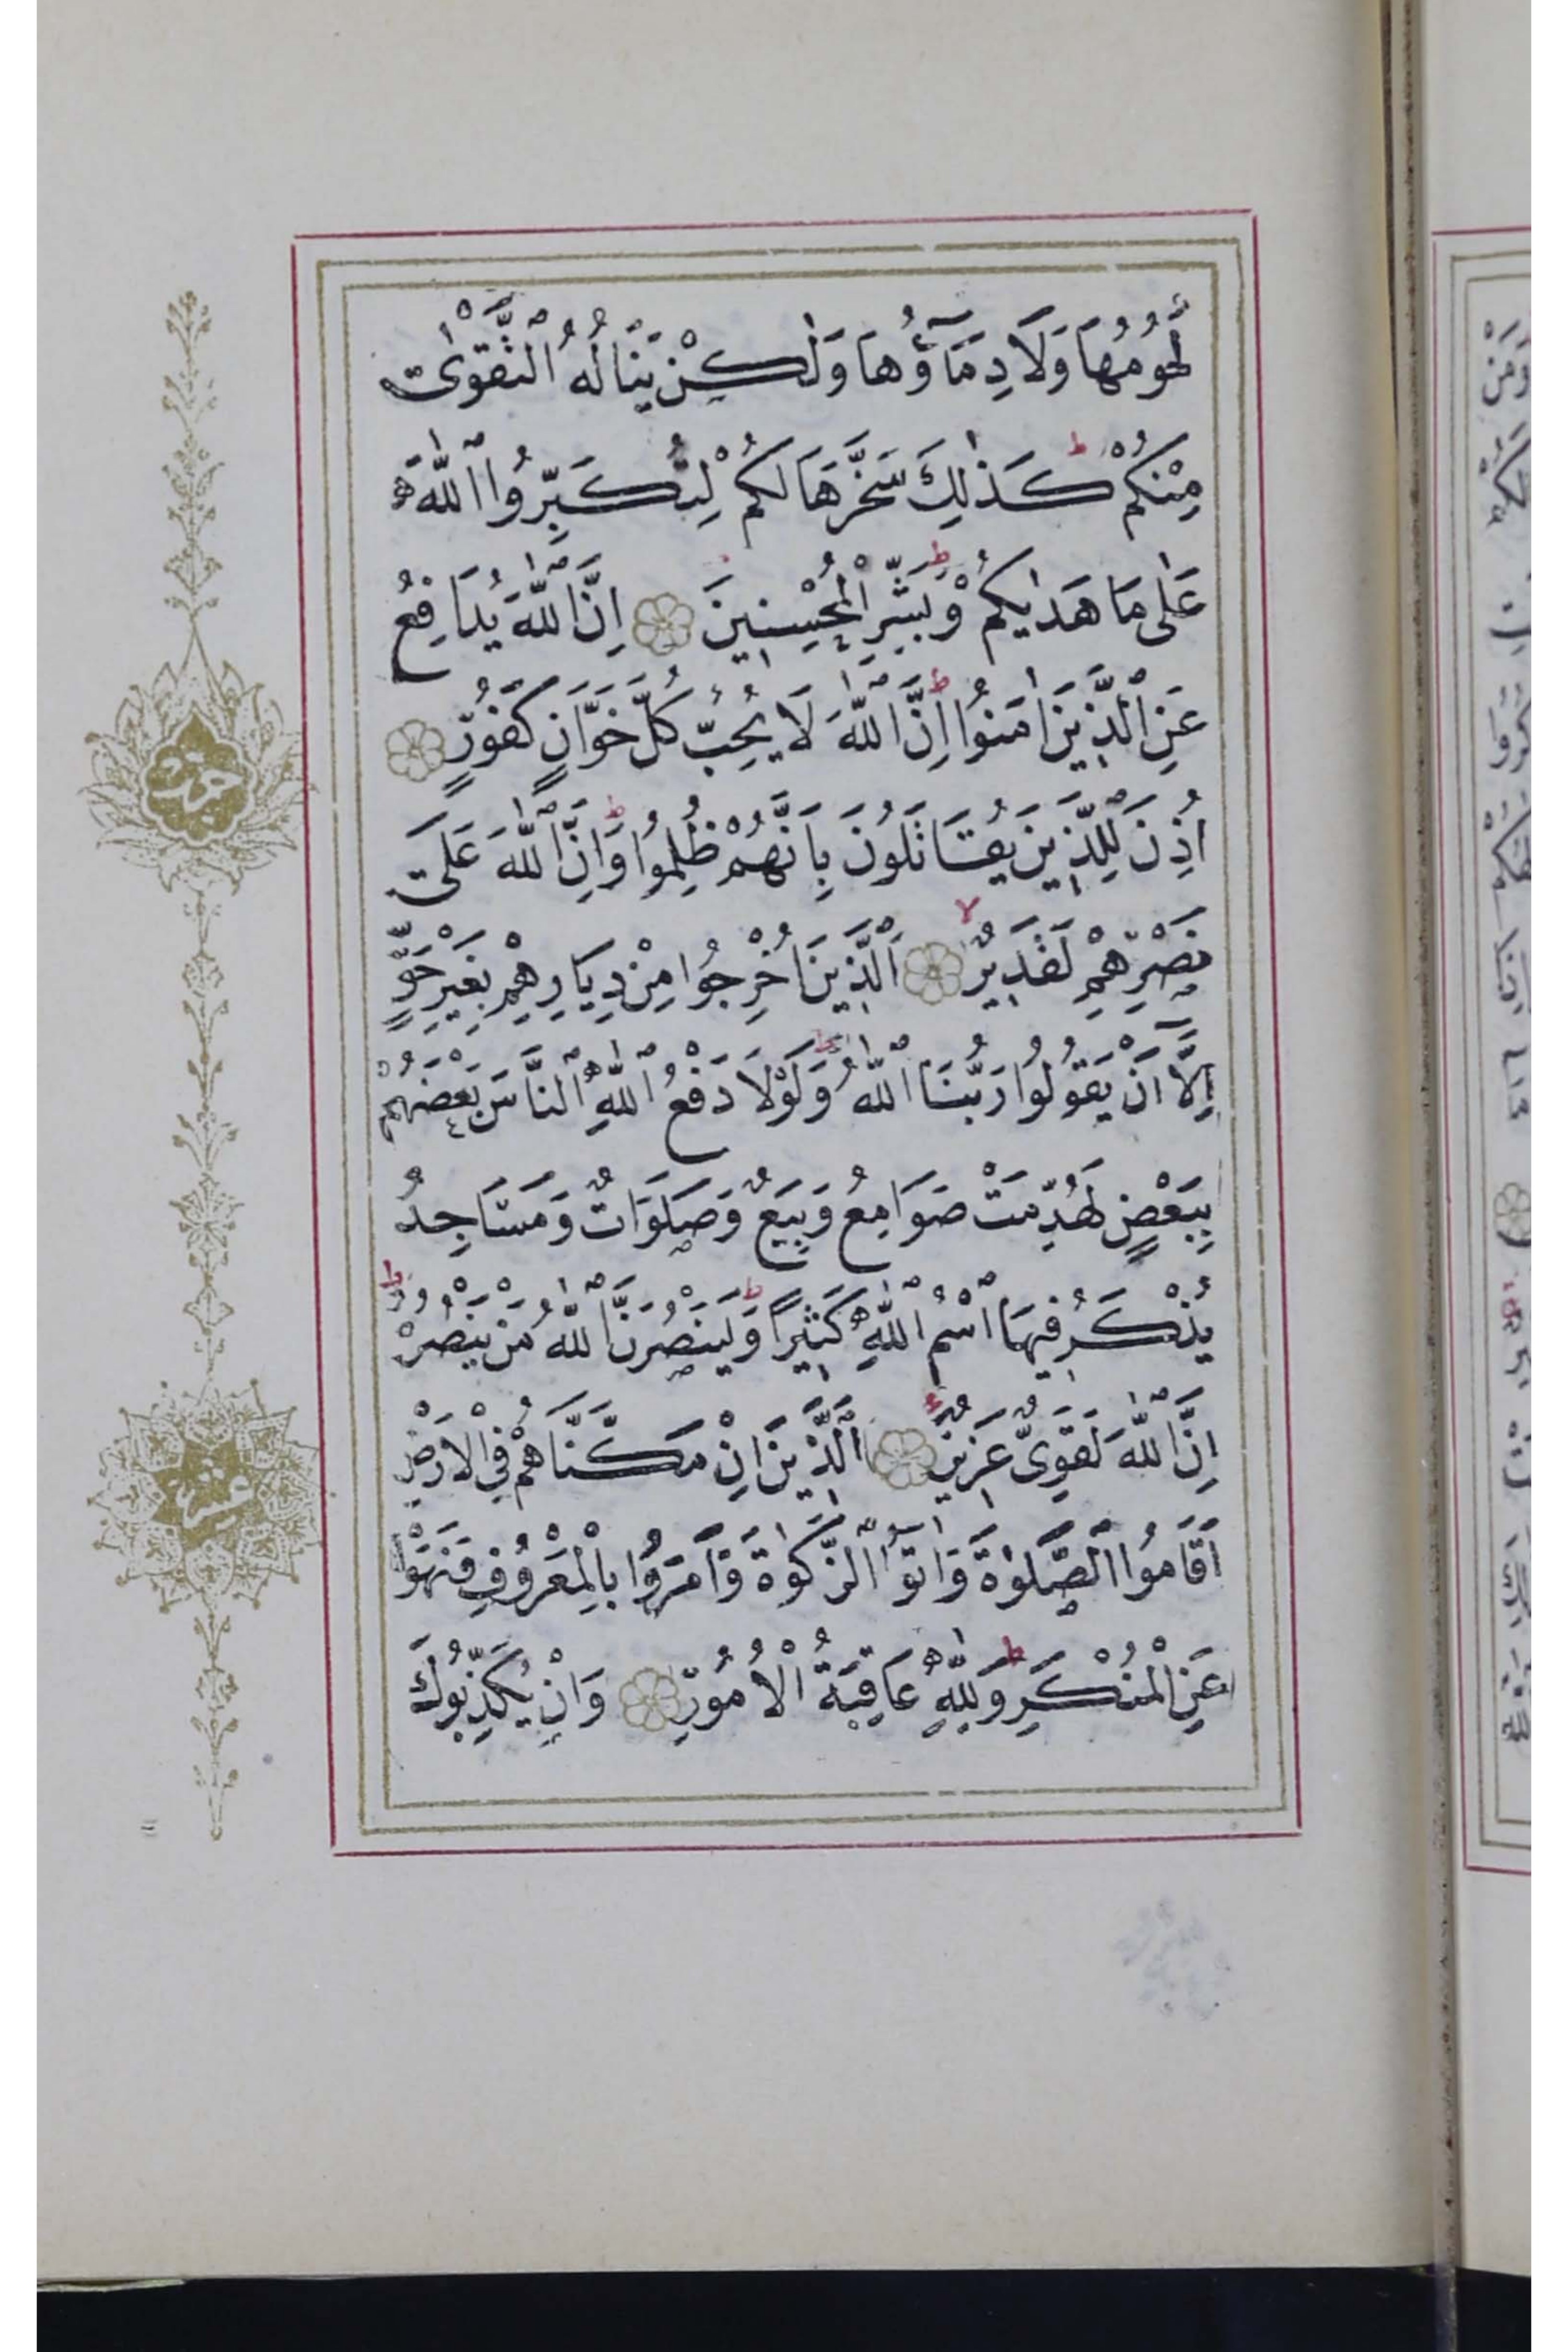 لُحُومُهَا وَلَا دِمَآؤُهَا وَلٰكِنْ يَنَالُهُ التَّقْوٰى
مِنْكُمْ ط كَذٰلِكَ سَخَّرَهَا لَكُمْ لِتُكَبِّرُوا اللّٰهَ
عَلٰى مَا هَدٰيكُمْ ط وَبَشِّرِ الْمُحْسِنِينَ اِنَّ اللّٰهَ يُدَافِعُ
عَنِ الَّذِينَ اٰمَنُوا ط اِنَّ اللّٰهَ لَا يُحِبُّ كُلَّ خَوَّانٍ كَفُورٍ
اُذِنَ لِلَّذِينَ يُقَاتَلُونَ بِاَنَّهُمْ ظُلِمُوا ط وَاِنَّ اللّٰهَ عَلٰى
نَصْرِهِمْ لَقَدِيرٌ لا اَلَّذِينَ اُخْرِجُوا مِنْ دِيَارِهِمْ بِغَيْرِ حَقٍّ
اِلَّآ اَنْ يَقُولُوا رَبُّنَا اللّٰهُ ط وَلَوْلَا دَفْعُ اللّٰهِ النَّاسَ بَعْضَهُمْ
بِبَعْضٍ لَهُدِّمَتْ صَوَامِعُ وَبِيَعٌ وَصَلَوَاتٌ وَمَسَاجِدُ
يُذْكَرُ فِيهَا اسْمُ اللّٰهِ كَثِيرًا ط وَلَيَنْصُرَنَّ اللّٰهُ مَنْ يَنْصُرُهُ ط
اِنَّ اللّٰهَ لَقَوِىٌّ عَزِيزٌ اَلَّذِينَ اِنْ مَكَّنَّاهُمْ فِى الْاَرْضِ
اَقَامُوا الصَّلٰوةَ وَاٰتَوُا الزَّكٰوةَ وَاَمَرُوا بِالْمَعْرُوفِ وَنَهَوْا
عَنِ الْمُنْكَرِ ط وَلِلّٰهِ عَاقِبَةُ الْاُمُورِ وَاِنْ يُكَذِّبُوكَ
حزب